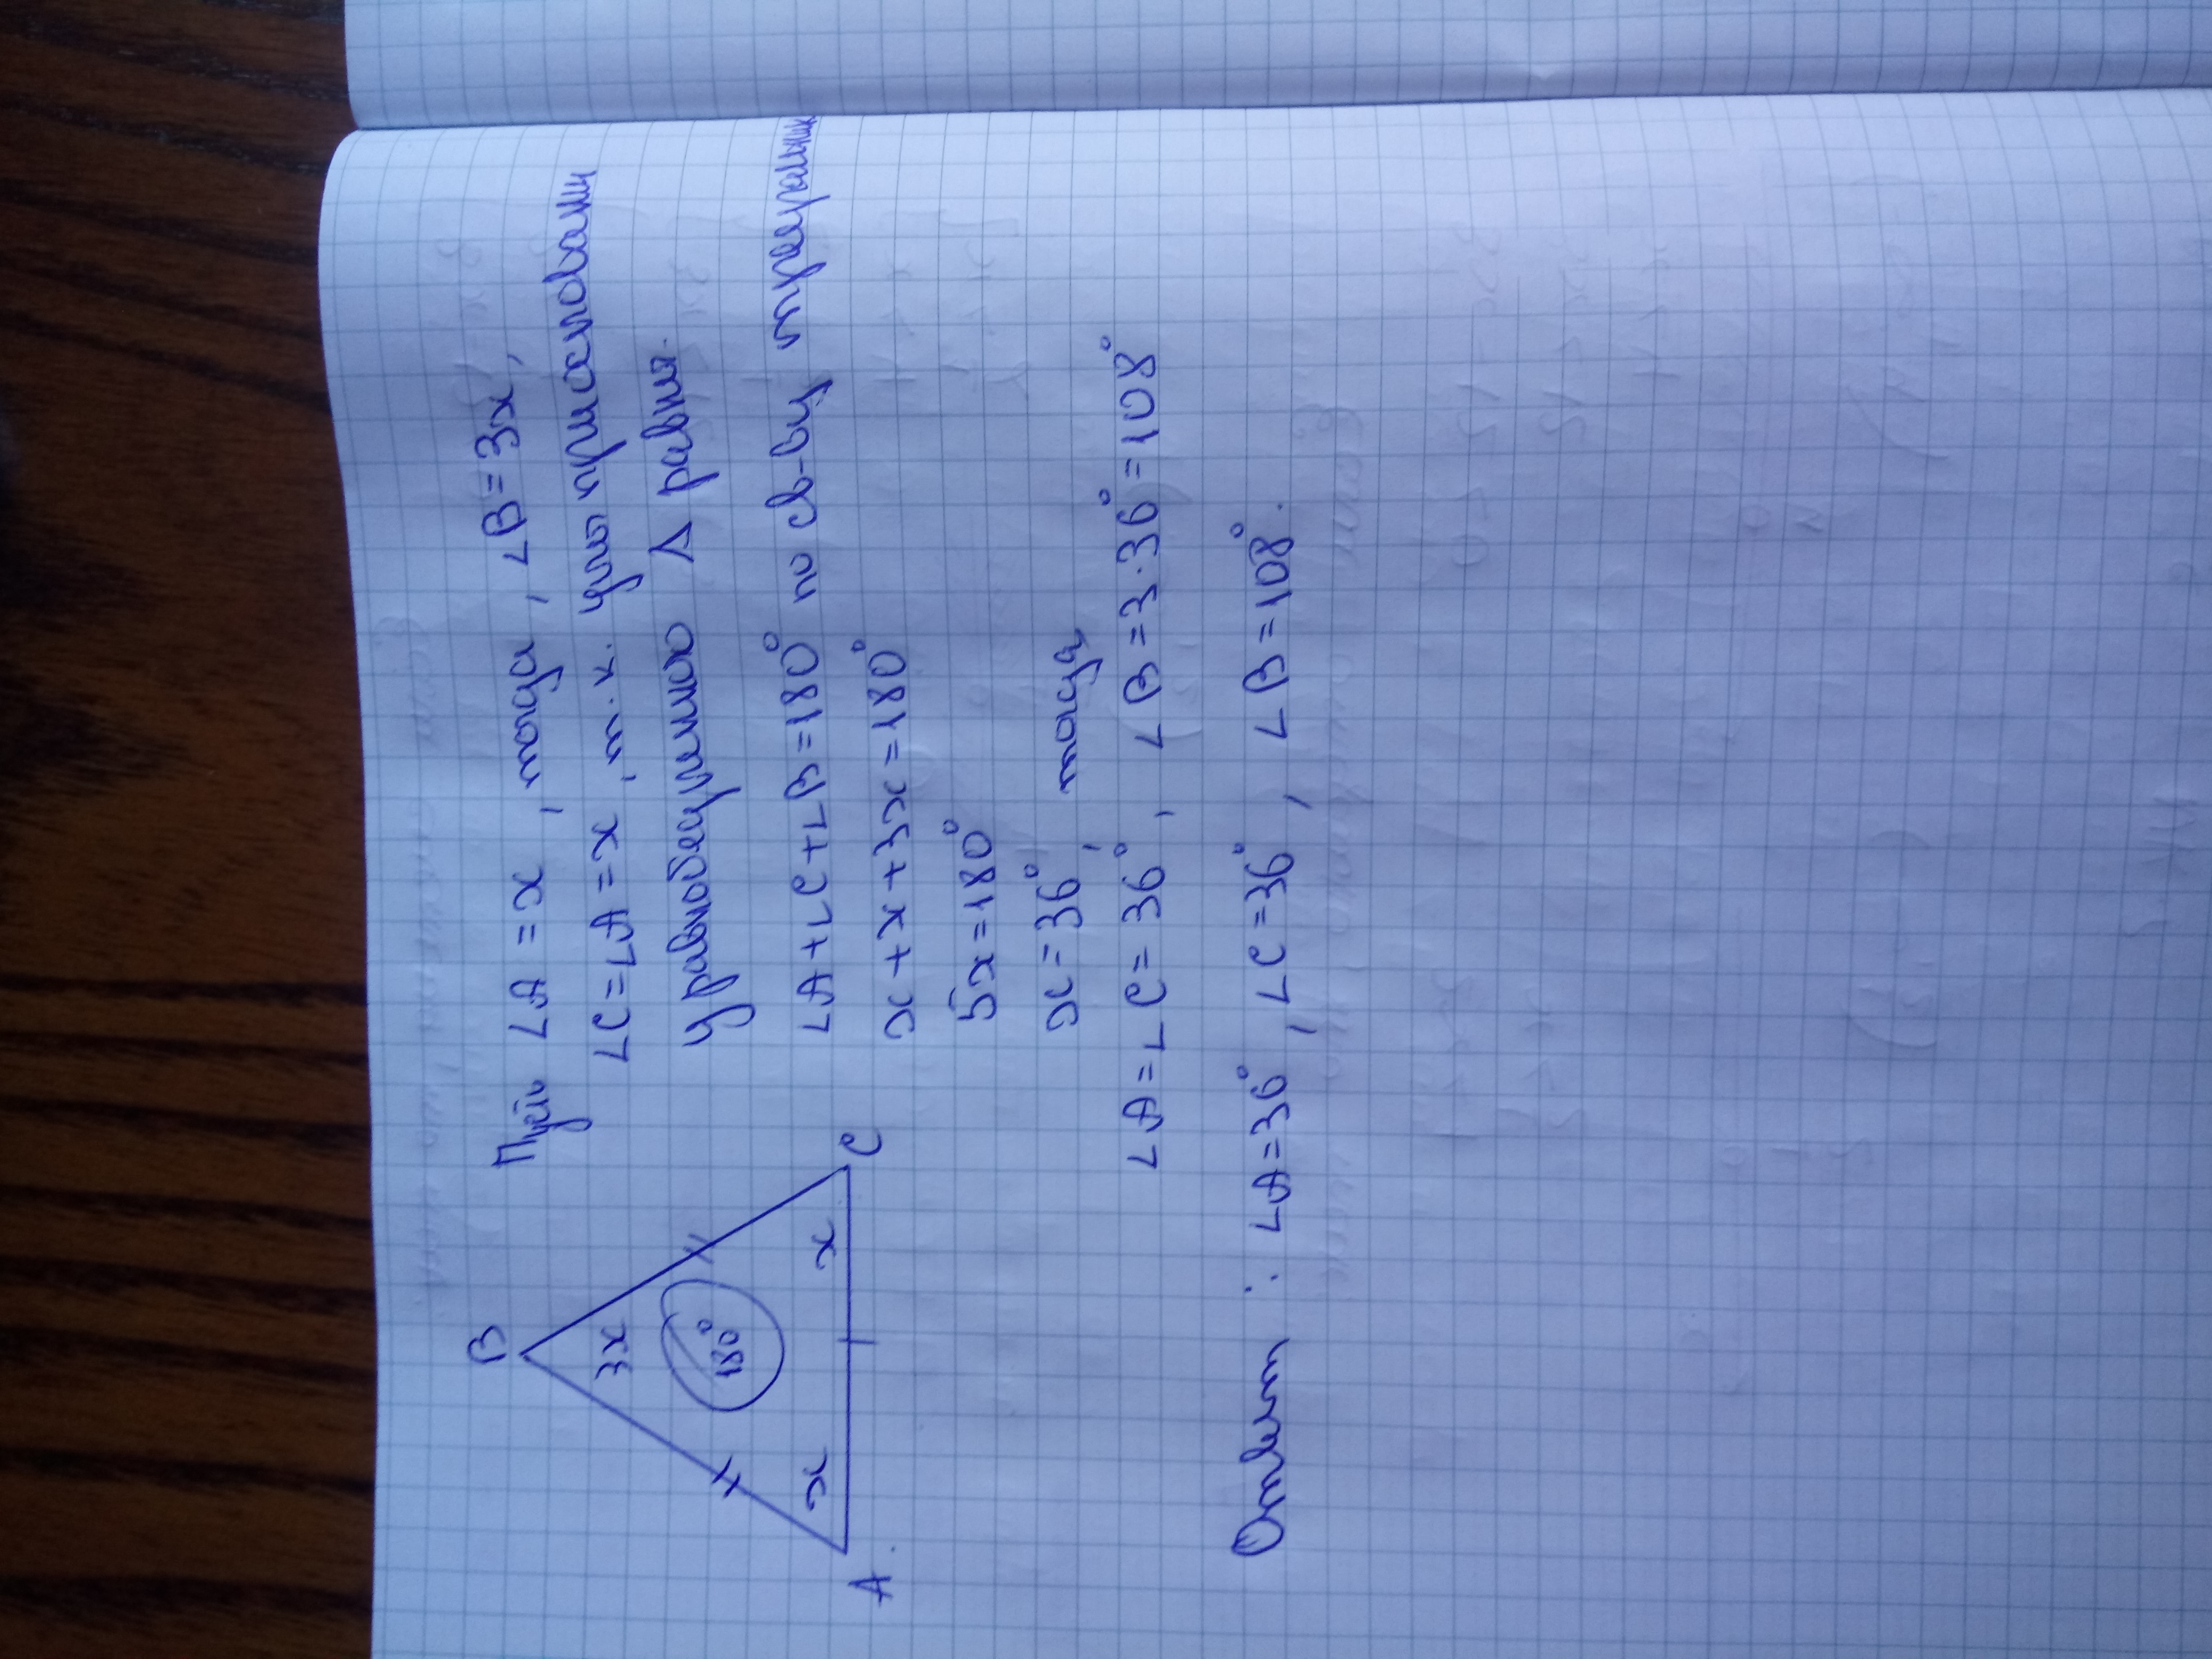 B
3x
180°
x
x
A
C
Пусть ∠A = x , тогда , ∠B = 3x ,
∠C = ∠A = x , т.к. углы при основании
у равнобедренного △ равны.
∠A + ∠C + ∠B = 180° по св-ву треугольник
x + x + 3x = 180°
5x = 180°
x = 36°, тогда
∠A = ∠C = 36° , ∠B = 3·36° = 108°
Ответ : ∠A = 36° , ∠C = 36° , ∠B = 108° .